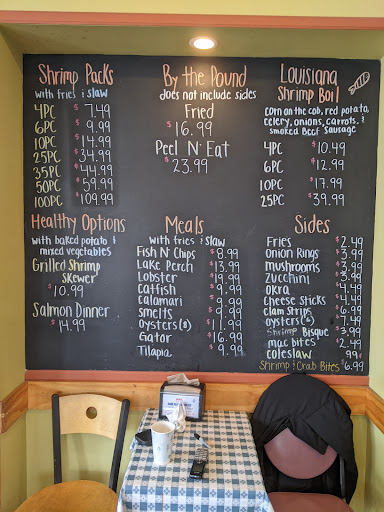 Shrimp Packs
with fries & slaw
4PC $7.49
6PC $9.99
10PC $14.99
25PC $34.99
35PC $44.99
50PC $59.99
100PC $109.99
By the Pound
does not include sides
Fried
$16.99
Peel N' Eat
$23.99
Louisiana
Shrimp Boil
corn on the cob, red potato,
celery, onions, carrots, &
smoked Beef Sausage
4PC $10.49
6PC $12.99
10PC $17.99
25PC $39.99
Healthy Options
with baked potato &
mixed vegetables
Grilled Shrimp
Skewer
$10.99
Salmon Dinner
$14.99
Meals
with fries & slaw
Fish N' Chips $8.99
Lake Perch $13.99
Lobster $19.99
Catfish $9.99
Calamari $9.99
smelts $9.99
oysters(8) $11.99
Gator $16.99
Tilapia $9.99
Sides
Fries $2.49
Onion Rings $3.99
mushrooms $3.99
Zucchini $3.99
okra $4.49
Cheese Sticks $4.49
Clam Strips $6.49
oysters $7.49
Shrimp Bisque $3.99
mac bites $2.49
coleslaw 99¢
Shrimp & Crab Bites $6.99